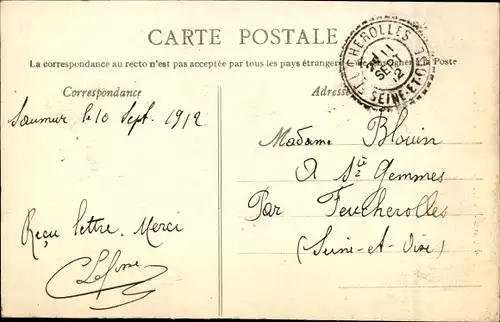 CARTE POSTALE
La correspondance au recto n'est pas acceptée par tous les pays étrangers à la Poste
Correspondance
Adresse
FEUCHEROLLES
11 SEPT 12
SEINE-ET-OISE
Saumur le 10 Sept. 1912
Reçu lettre. Merci
Madame Blouin
A Ste Gemmes
Par Feucherolles
(Seine-et-Oise)